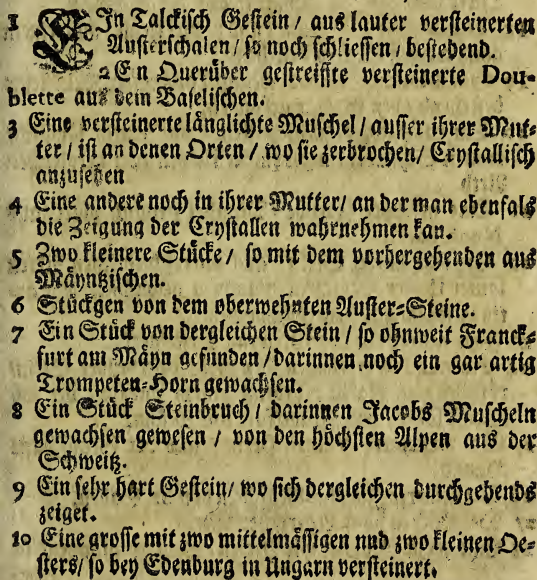 1 EJn Talckisch Gestein / aus lauter versteinerten
Austerschalen / so noch schliessen / bestehend.
2 En Querüber gestreiffte versteinerte Dou-
blette aus dem Baselischen.
3 Eine versteinerte länglichte Muschel / ausser ihrer Mut-
ter / ist an denen Orten / wo sie zerbrochen / Crystallisch
anzusehen
4 Eine andere noch in ihrer Mutter / an der man ebenfals
die Zeigung der Crystallen wahrnehmen kan.
5 Zwo kleinere Stücke / so mit dem vorhergehenden aus
Mäyntzischen.
6 Stückgen von dem oberwehnten Auster-Steine.
7 Ein Stück von dergleichen Stein / so ohnweit Franck-
furt am Mäyn gefunden / darinnen noch ein gar artig
Trompeten-Horn gewachsen.
8 Ein Stück Steinbruch / darinnen Jacobs Muscheln
gewachsen gewesen / von den höchsten Alpen aus der
Schweitz.
9 Ein sehr hart Gestein / wo sich dergleichen durchgehends
zeiget.
10 Eine grosse mit zwo mittelmässigen nnd zwo kleinen Oe-
sters / so bey Edenburg in Ungarn versteinert.